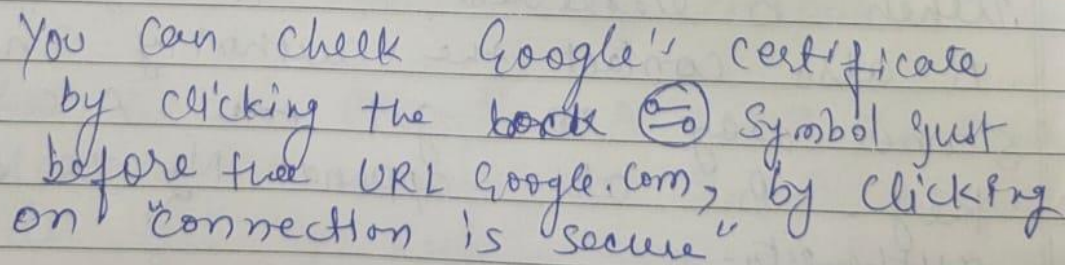 You can check Google's certificate
by clicking the symbol just
before the URL Google.com, by clicking
on "connection is secure"